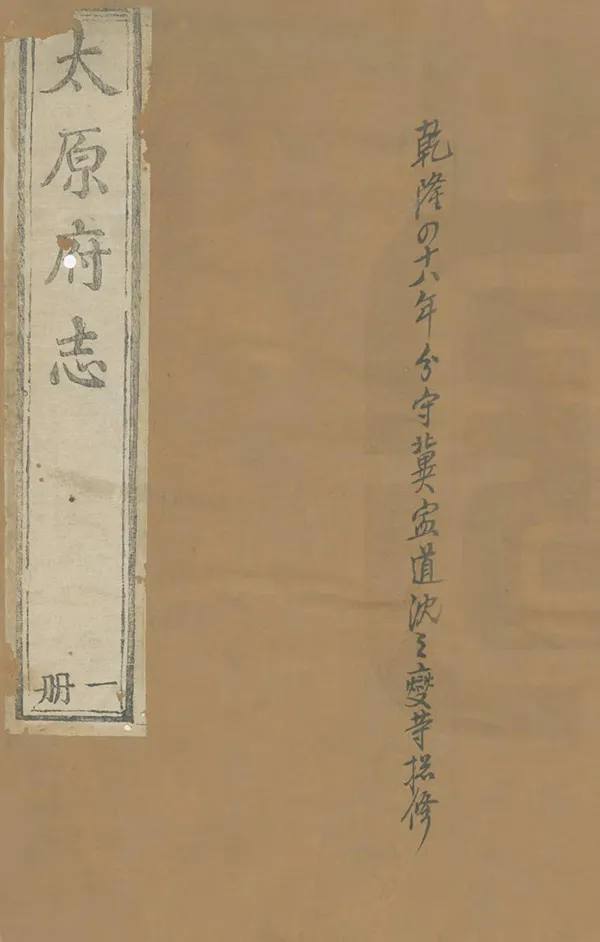 乾隆四十八年分守冀寍道沈之燮等捴修
太原府志
一册